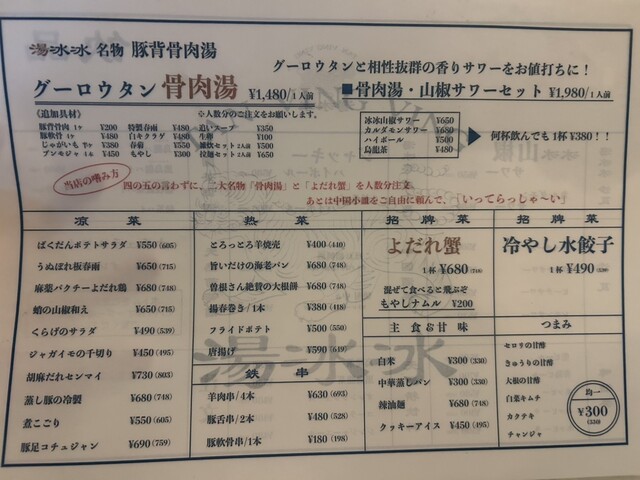 湯冰冰 名物 豚背骨肉湯
グーロウタン 骨肉湯 ¥1,480/1人前
グーロウタンと相性抜群の香りサワーをお値打ちに！
■骨肉湯・山椒サワーセット ¥1,980/1人前
〈追加具材〉 ※人数分のご注文をお願いします。
豚背骨肉 1ヶ ¥200 特製春雨 ¥480 追いスープ ¥350
豚軟骨 1ヶ ¥480 白キクラゲ ¥480 生卵 ¥100
じゃがいも ¥380 春菊 ¥550 雑炊セット 2人前 ¥500
ブンモジャ 1本 ¥450 もやし ¥300 拉麺セット 2人前 ¥650
冰冰山椒サワー ¥650
カルダモンサワー ¥680
ハイボール ¥500
烏龍茶 ¥480
何杯飲んでも 1杯 ¥380！！
当店の嗜み方
四の五の言わずに、二大名物「骨肉湯」と「よだれ蟹」を人数分注文
あとは中国小皿をご自由に頼んで、「いってらっしゃ〜い」
凉菜
ばくだんポテトサラダ ¥550 (605)
うぬぼれ板春雨 ¥650 (715)
麻薬パクチーよだれ鶏 ¥680 (748)
蛸の山椒和え ¥650 (715)
くらげのサラダ ¥490 (539)
ジャガイモの千切り ¥450 (495)
胡麻だれセンマイ ¥730 (803)
蒸し豚の冷製 ¥680 (748)
煮こごり ¥550 (605)
豚足コチュジャン ¥690 (759)
熱菜
とろっとろ羊焼売 ¥400 (440)
旨いだけの海老パン ¥680 (748)
曽根さん絶賛の大根餅 ¥680 (748)
揚春巻き/1本 ¥380 (418)
フライドポテト ¥500 (550)
唐揚げ ¥590 (649)
鉄串
羊肉串/4本 ¥630 (693)
豚舌串/2本 ¥480 (528)
豚軟骨串/1本 ¥180 (198)
招牌菜
よだれ蟹
1杯 ¥680 (748)
混ぜて食べると飛ぶぞ
もやしナムル ¥200
招牌菜
冷やし水餃子
1杯 ¥490 (539)
主食&甘味
白米 ¥300 (330)
中華蒸しパン ¥300 (330)
辣油麺 ¥680 (748)
クッキーアイス ¥450 (495)
つまみ
セロリの甘酢
きゅうりの甘酢
大根の甘酢
白菜キムチ
カクテキ
チャンジャ
均一
¥300
(330)
湯冰冰